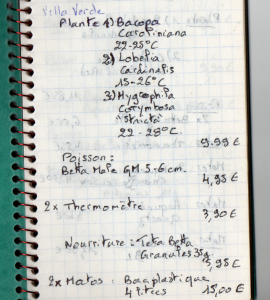 Villa Verde
Plante 1) Bacopa
Caroliniana
22-25°C
2) Lobelia
Cardinalis
15-26°C
3) Hygrophila
Corymbosa
"Stricta"
22-29°C
9.99 €
Poisson :
Betta Male GM 5.6 cm.
4,95 €
2x Thermomètre
3,90 €
Nourriture : Teta Betta
Granules 35g
5,95 €
2x Matos : Bac plastique
4 litres 15,00 €